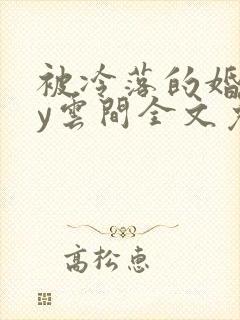 被冷落的婚
y雲間全文
高松惠